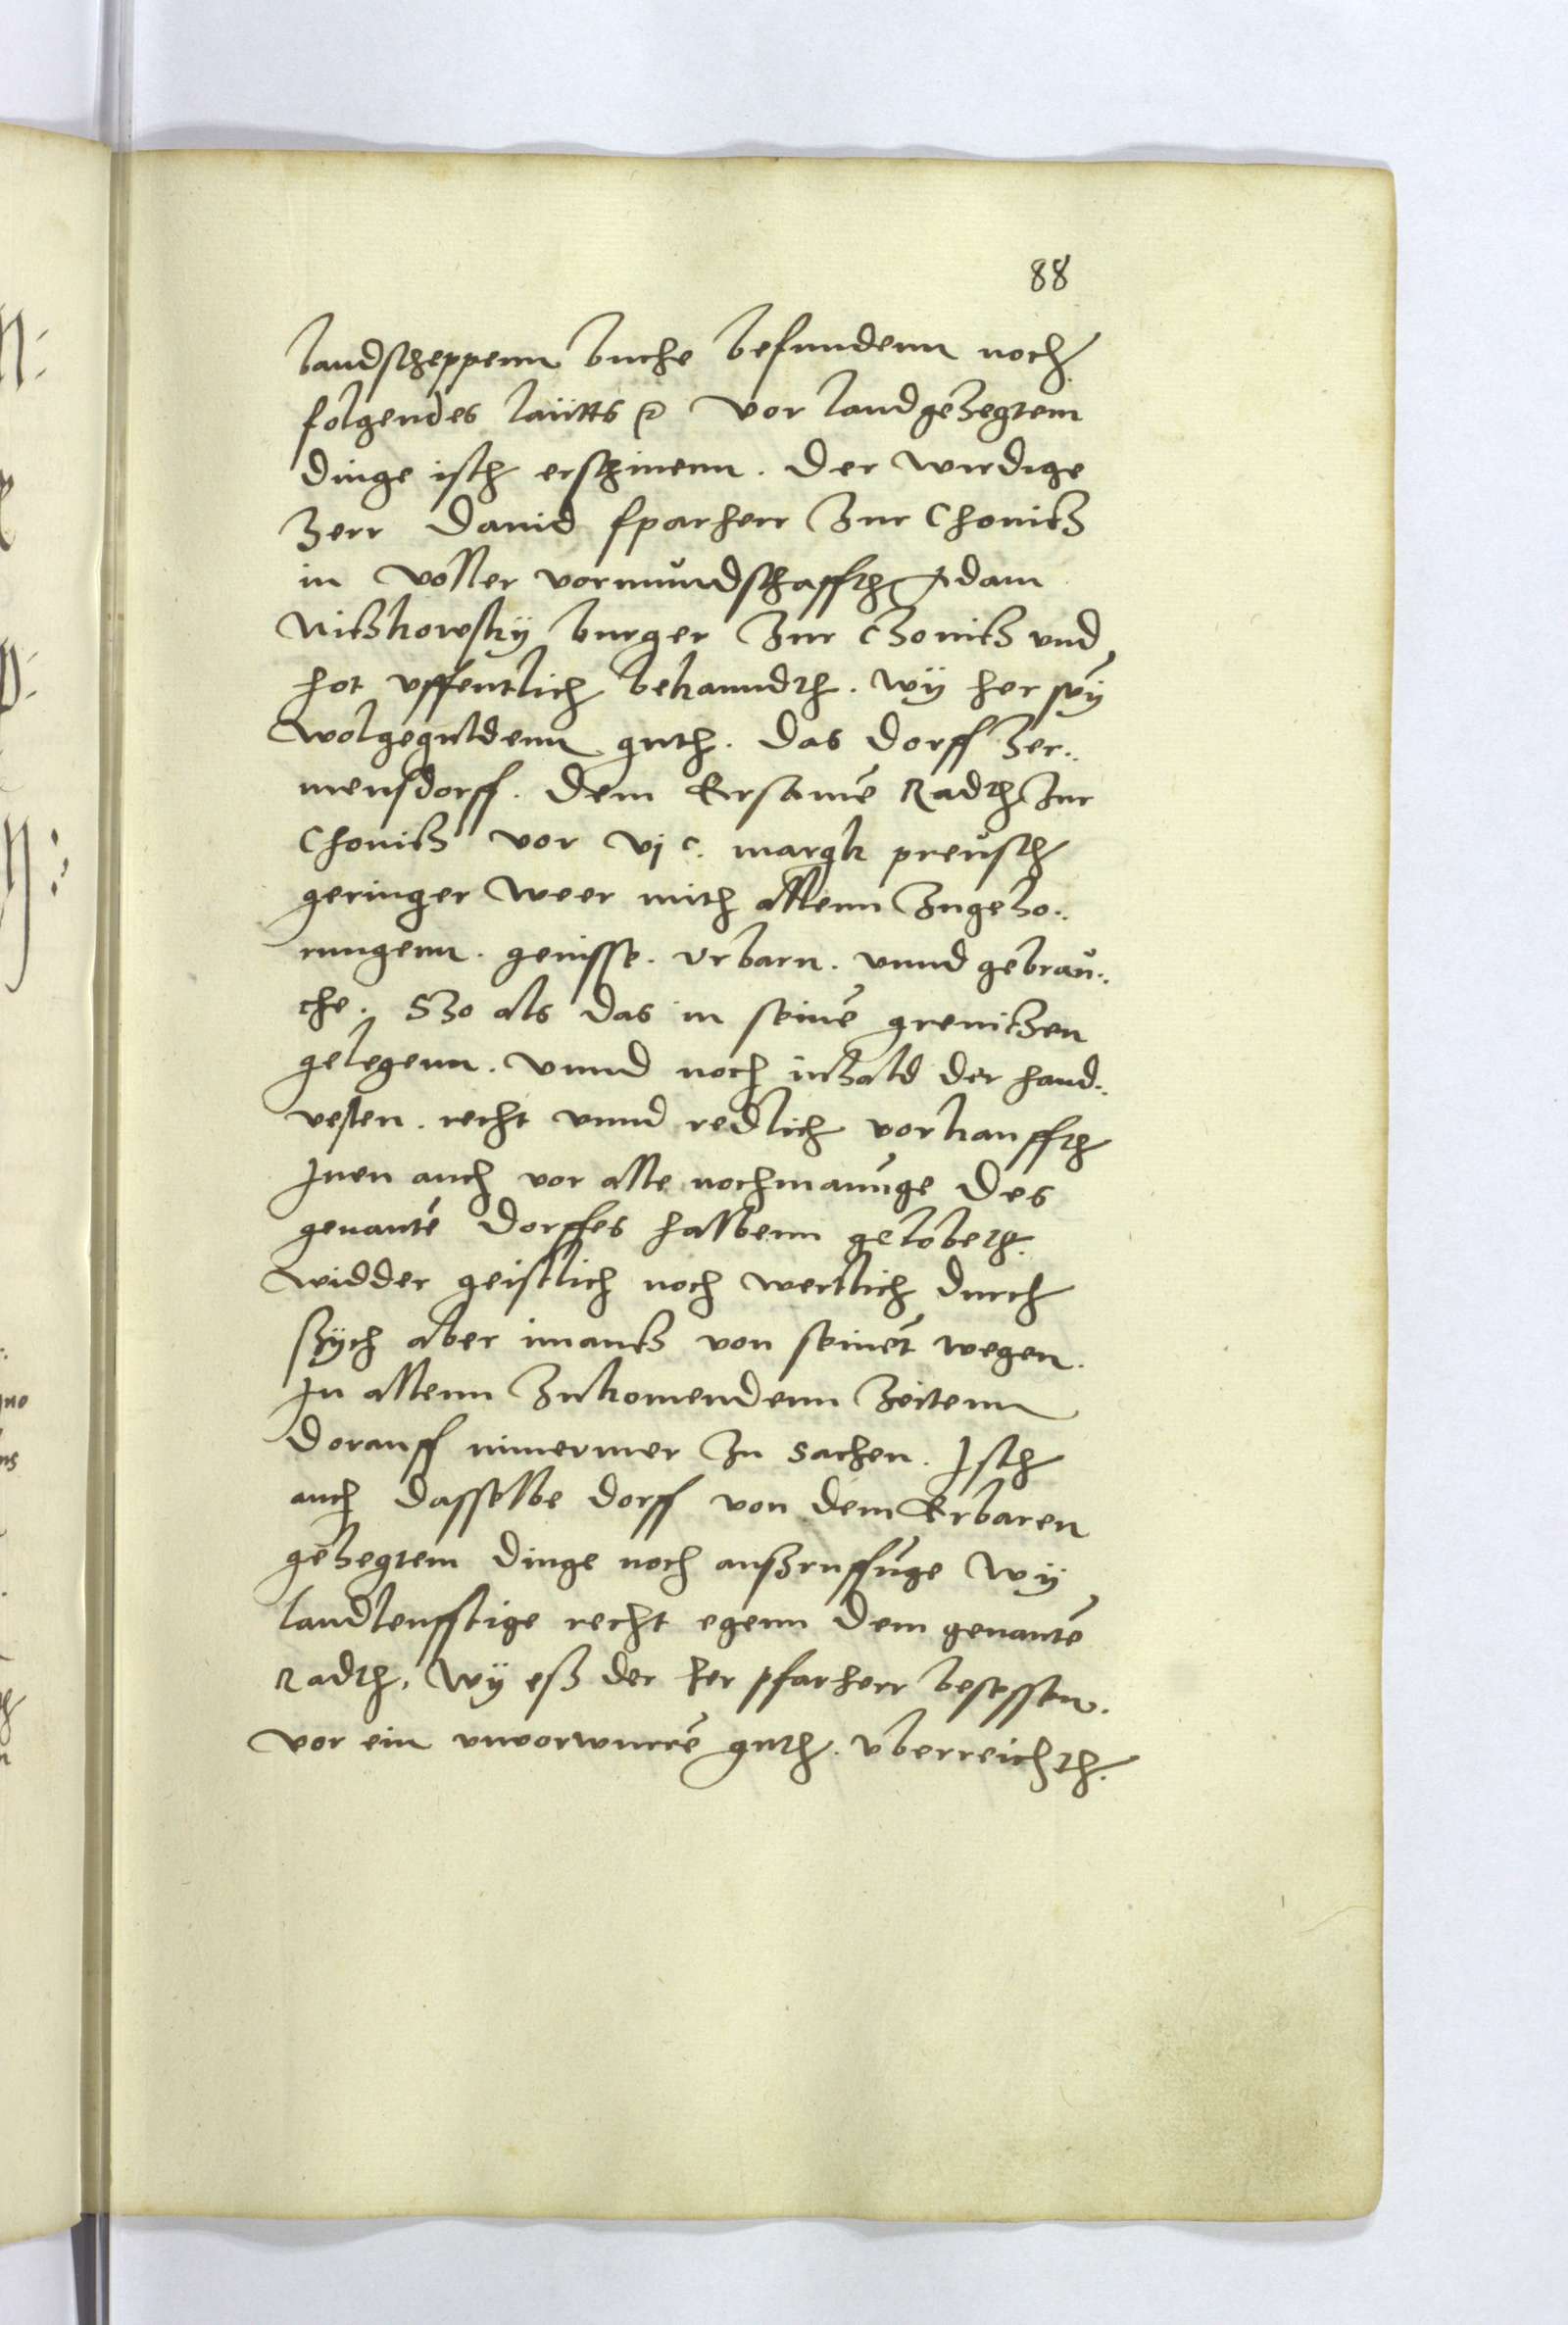 88
landscheppenn buche befundenn noch
folgendes lautts etc vor landgehegtem
dinge isth erschinenn . der wirdige
herr David pfarherr zur Chonitz
in voller vormundschaffth Adam
Nitzkowsky burger zur Chonitz und
hot uffentlich bekanndth . wy her sey
wolgeguldenn guth . das dorff Her-
mensdorff . dem Ersame Radth zur
Chonitz vor vj c. margk preusch
geringer weer mith allenn zugeho-
rungenn . genisse . urbarn . unnd gebrau-
che . Szo als das in seine grenitzen
gelegenn . unnd noch inhald der hand-
vesten . recht unnd redlich vorkauffth
Inen auch vor alle nochmanuge des
genante dorffes halbenn gelobeth .
widder geistlich noch wertlich durch
szych aber imantz von seinet wegen .
In allenn zukomendenn zeitenn
dorauff nimermer zu sachen . Isth
auch dasselbe dorff von dem Erbaren
gehegtem dinge noch auszruffuge wy
landleufftige recht egenn dem genante
Radth , wy esz der her pfarherr besessen .
vor ein unvorwurre guth . uberreichth .